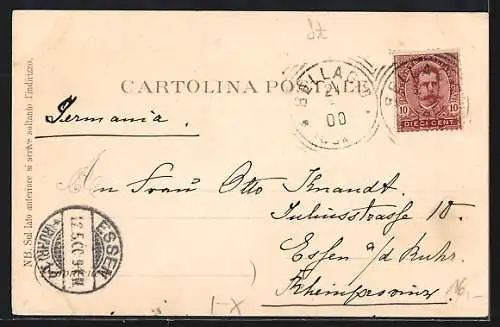 dt
CARTOLINA POSTALE
BELLAGIO
21
00
10 10
DIECI CENT.
Germania.
An Frau Otto Knandt.
Juliusstrasse 10.
Essen a/d Ruhr.
Rheinprovinz
ESSEN
12.5.00.9-10V.
(RUHR)
I-X
16,-
NB. Sul lato anteriore si scrive soltanto l'indirizzo.